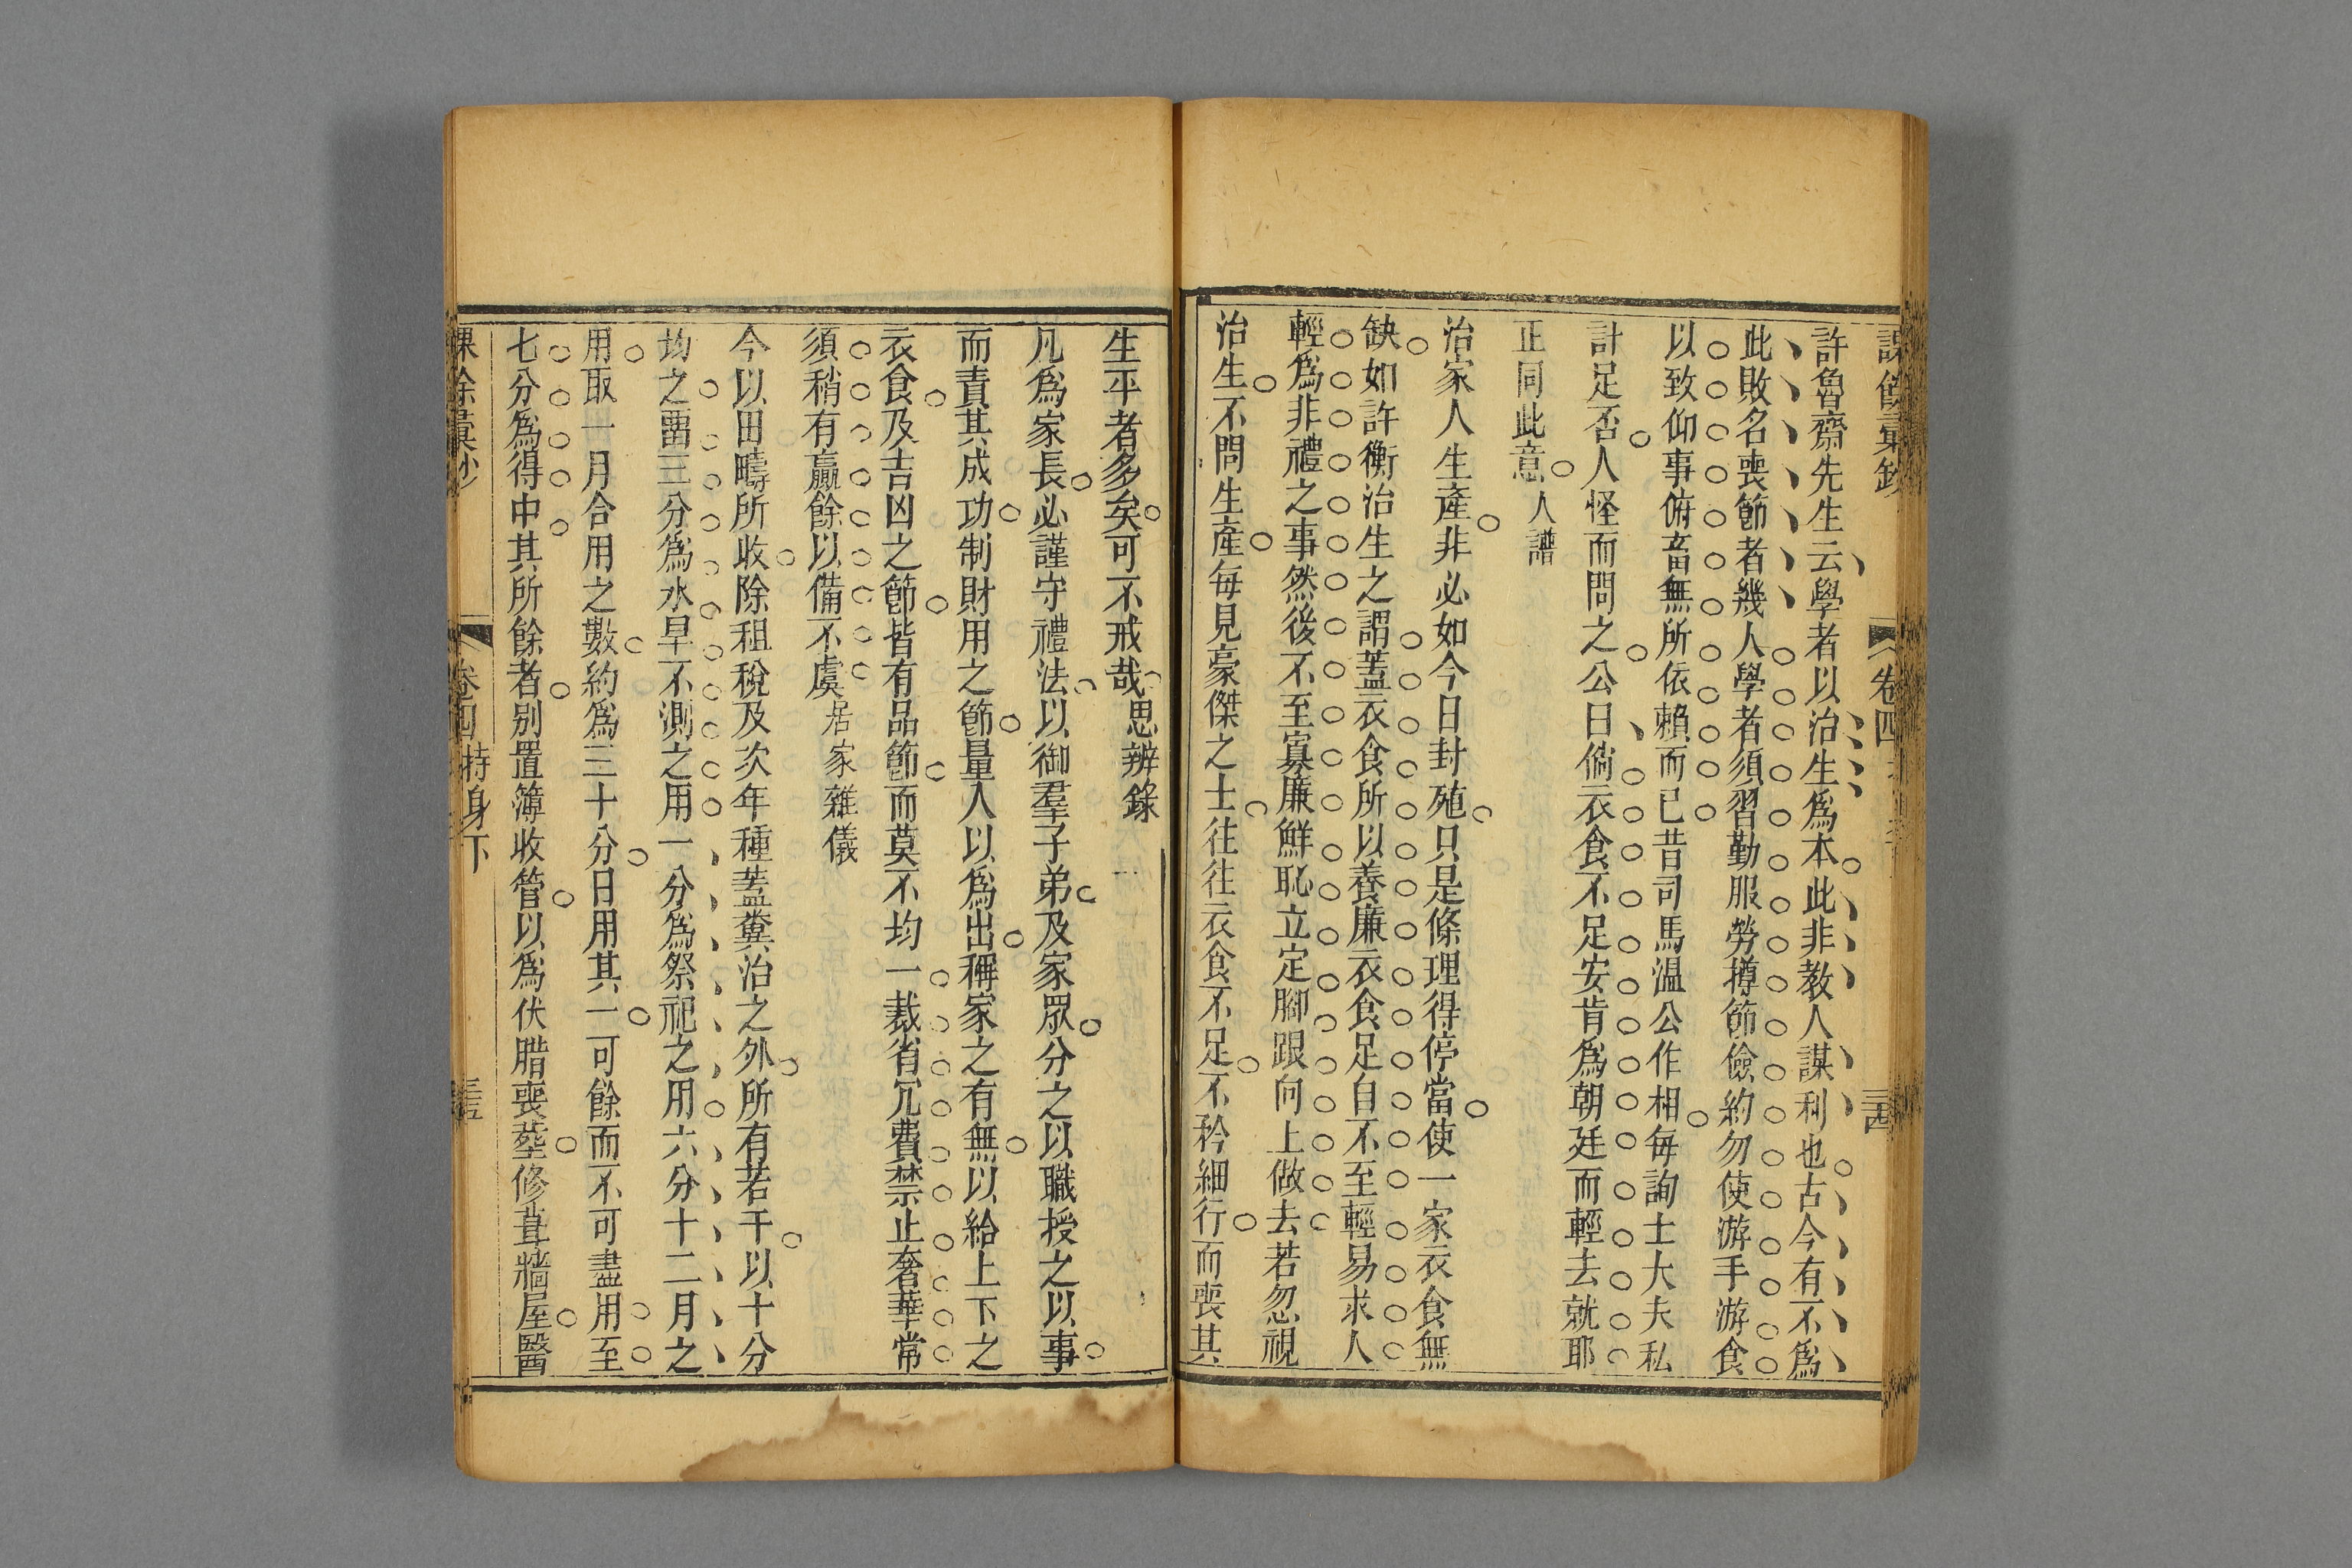 課餘彙鈔
卷四
三四
許魯齋先生云學者以治生爲本此非教人謀利也古今有不爲
此敗名喪節者幾人學者須習勤服勞撙節儉約勿使游手游食
以致仰事俯畜無所依賴而已昔司馬温公作相每詢士大夫私
計足否人怪而問之公曰倘衣食不足安肯爲朝廷而輕去就耶
正同此意人譜
治家人生產非必如今日封殖只是條理得停當使一家衣食無
缺如許衡治生之謂蓋衣食所以養廉衣食足自不至輕易求人
輕爲非禮之事然後不至寡廉鮮恥立定腳跟向上做去若忽視
治生不問生產每見豪傑之士往往衣食不足不矜細行而喪其
生平者多矣可不戒哉思辨錄
凡爲家長必謹守禮法以御羣子弟及家眾分之以職授之以事
而責其成功制財用之節量入以爲出稱家之有無以給上下之
衣食及吉凶之節皆有品節而莫不均一裁省冗費禁止奢華常
須稍有贏餘以備不虞居家雜儀
今以田疇所收除租稅及次年種蓋糞治之外所有若干以十分
均之畱三分爲水旱不測之用一分爲祭祀之用六分十二月之
用取一月合用之數約爲三十分日用其一可餘而不可盡用至
七分爲得中其所餘者別置簿收管以爲伏腊喪塟修葺牆屋醫
課餘彙鈔
卷四 持身下
三五